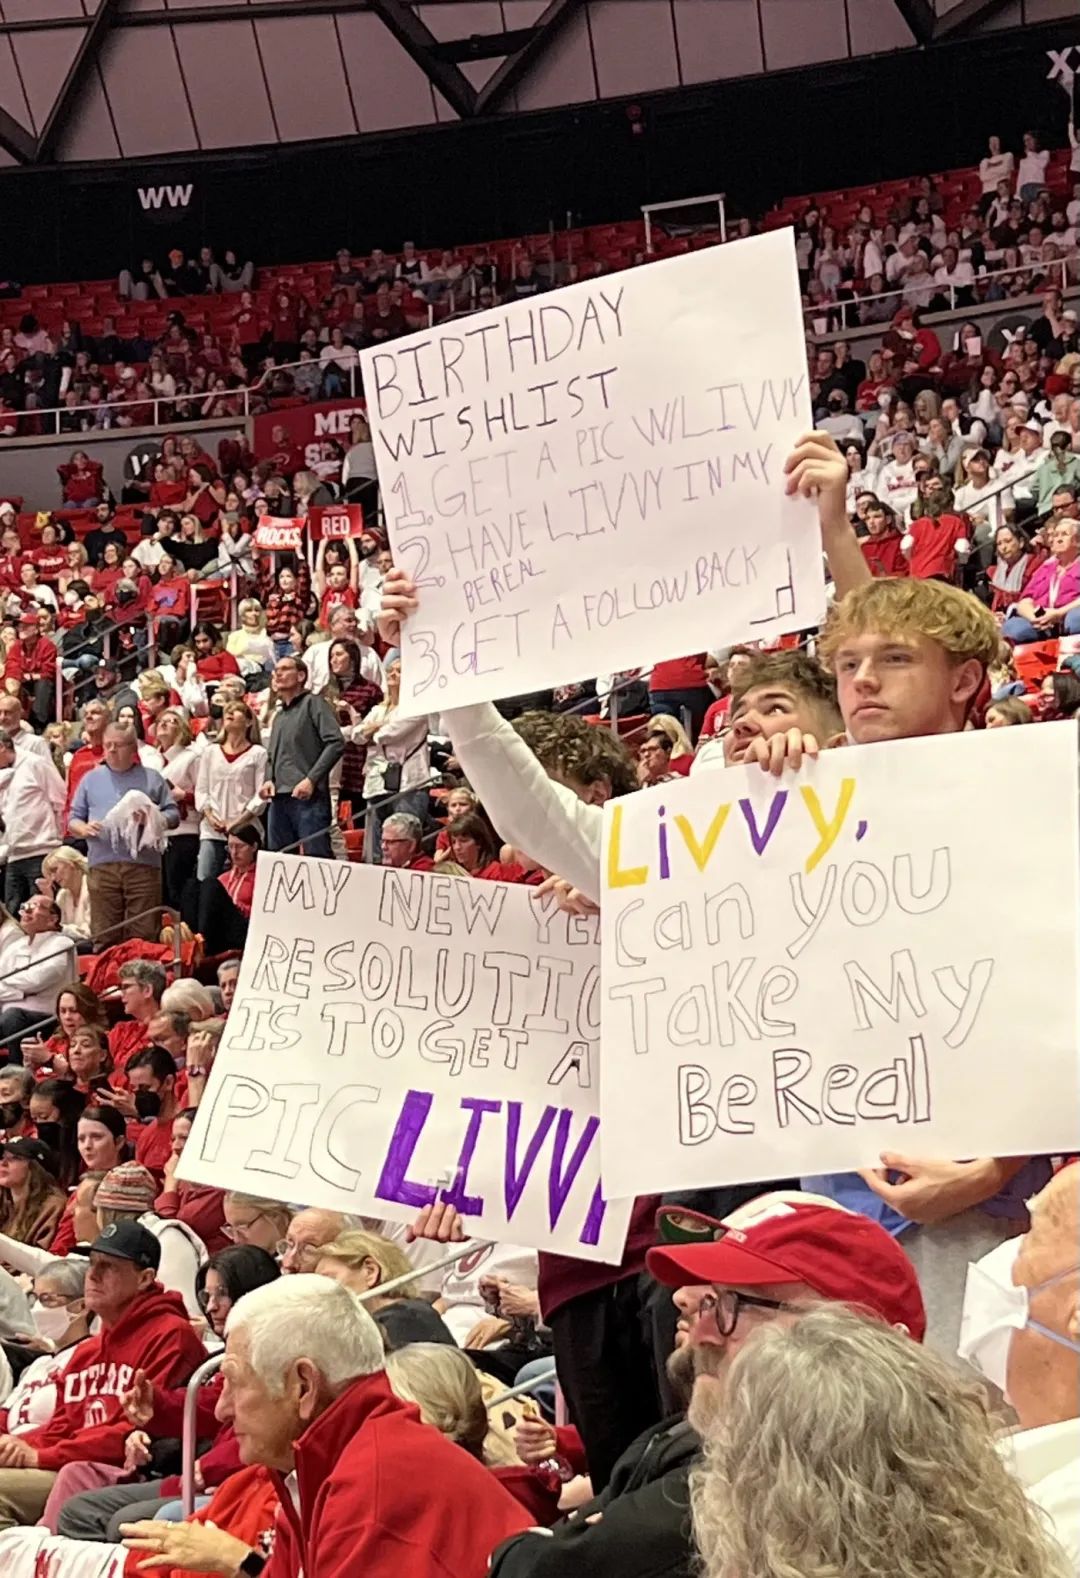 WW
XX
ROCKS
RED
BIRTHDAY
WISHLIST
1. GET A PIC W/LIVVY
2. HAVE LIVVY IN MY
BEREAL
3. GET A FOLLOW BACK
MY NEW YEA
RESOLUTIO
IS TO GET A
PIC LIVVY
Livvy,
can you
Take My
BeReal
UTAH